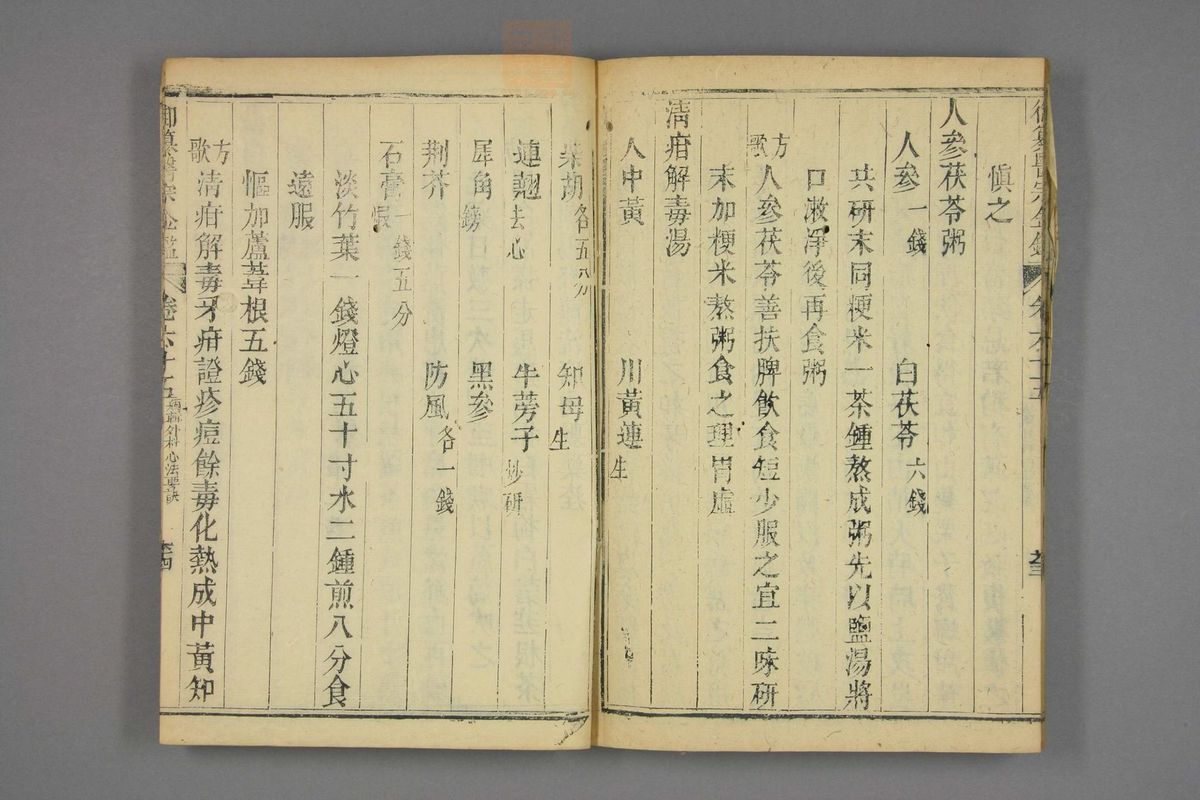 慎之
人參茯苓粥
人參一錢 白茯苓六錢
共研末同粳米一茶鍾熬成粥先以鹽湯將
口漱淨後再食粥
方歌 人參茯苓善扶脾飲食短少服之宜二味研
末加粳米熬粥食之理胃虛
清疳解毒湯
人中黃 川黃連生
柴胡各五分 知母生
連翹去心 牛蒡子炒研
犀角鎊 黑參
荆芥 防風各一錢
石膏煆一錢五分
淡竹葉一錢燈心五十寸水二鍾煎八分食
遠服
嘔加蘆葦根五錢
方歌 清疳解毒牙疳證疹痘餘毒化熱成中黃知
御纂醫宗金鑑 卷六十五 編輯外科心法要訣